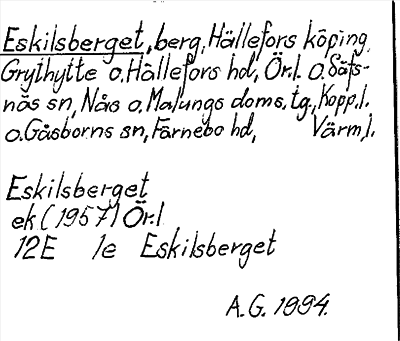 Eskilsberget, berg, Hällefors köping,
Grythytte o. Hällefors hd, Ör.l. o. Säfs-
näs sn, Nås o. Malungs doms. tg., Kopp.l.
o. Gåsborns sn, Färnebo hd, Värm.l.
Eskilsberget
ek (1957) Ör.l
12E 1e Eskilsberget
A.G. 1994.